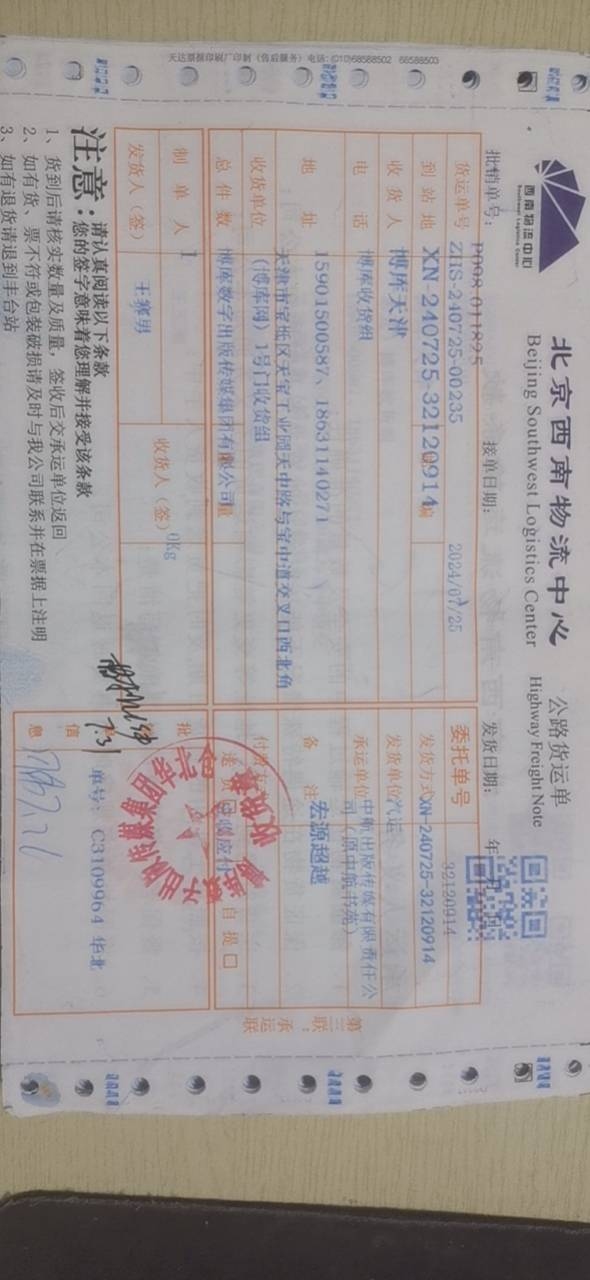 天达票据印刷厂印制（售后服务）电话：(010)68588502 68588503
西南物流中心
Southwest Logistics Center
北京西南物流中心 公路货运单
Beijing Southwest Logistics Center Highway Freight Note
批销单号： P098 011895 接单日期： 2024/07/25 发货日期： 年 月 日
货运单号 ZHS-240725-00235 委托单号 32120914
到站地 XN-240725-32120914 编 发货方式 XN-240725-32120914
收货人 博库天津 发货单位 汽运
电话 博库收货组 承运单位 中航出版传媒有限责任公司（原中航书苑）
地址 15901500587、18631140271 备注 宏源超越
收货单位 天津市宝坻区天宝工业园天中路与宝中道交叉口西北角
（博库网）1号门收货组
总件数 博库数字出版传媒集团有限公司 量 自提口
制单人 1 0Kg
收货人（签）
发货人（签） 王赛男
批
信
息
单号： C3109964 华北
7.31
收货章
第三联：承运联
注意：
请认真阅读以下条款
您的签字意味着您理解并接受该条款
1、货到后请核实数量及质量，签收后交承运单位返回
2、如有货、票不符或包装破损请及时与我公司联系并在票据上注明
3、如有退货请退到丰台站